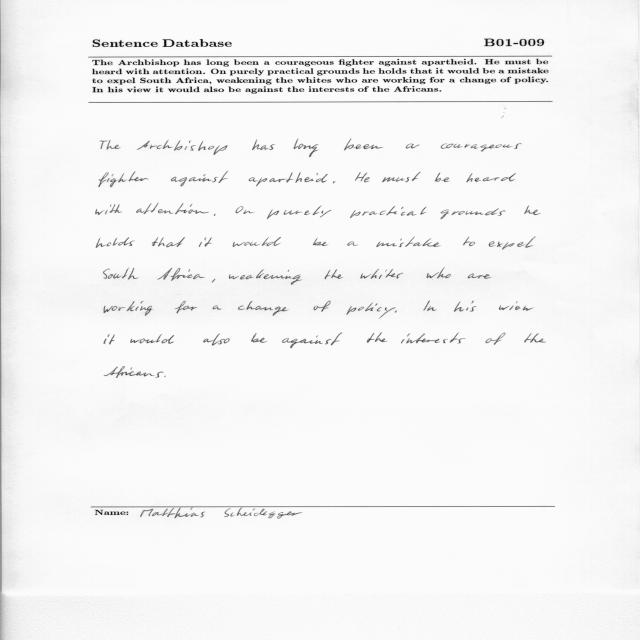 Sentence Database B01-009
The Archbishop has long been a courageous fighter against apartheid. He must be
heard with attention. On purely practical grounds he holds that it would be a mistake
to expel South Africa, weakening the whites who are working for a change of policy.
In his view it would also be against the interests of the Africans.
The Archbishop has long been a courageous
fighter against apartheid. He must be heard
with attention. On purely practical grounds he
holds that it would be a mistake to expel
South Africa, weakening the whites who are
working for a change of policy. In his view
it would also be against the interests of the
Africans.
Name: Matthias Scheidegger